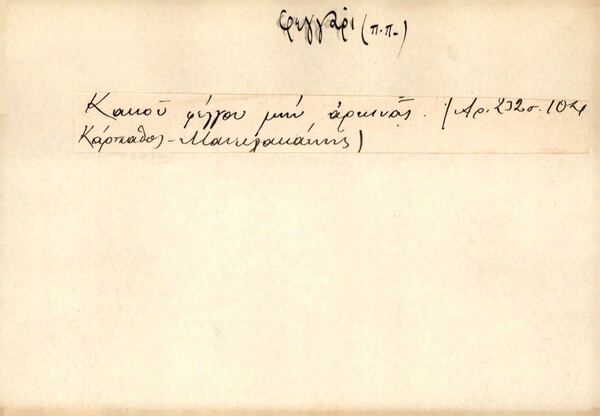 φεγγάρι (π.π.)
Κακού φέγγου μην άρκινάς. (Αρ. 232 σ. 104
Κάρπαθος - Μανωλακάκης)